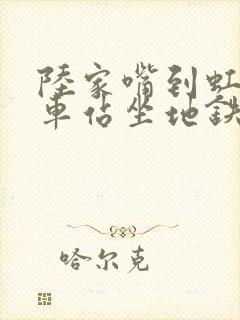 陸家嘴到虹
車佔坐地鉄
哈尔克